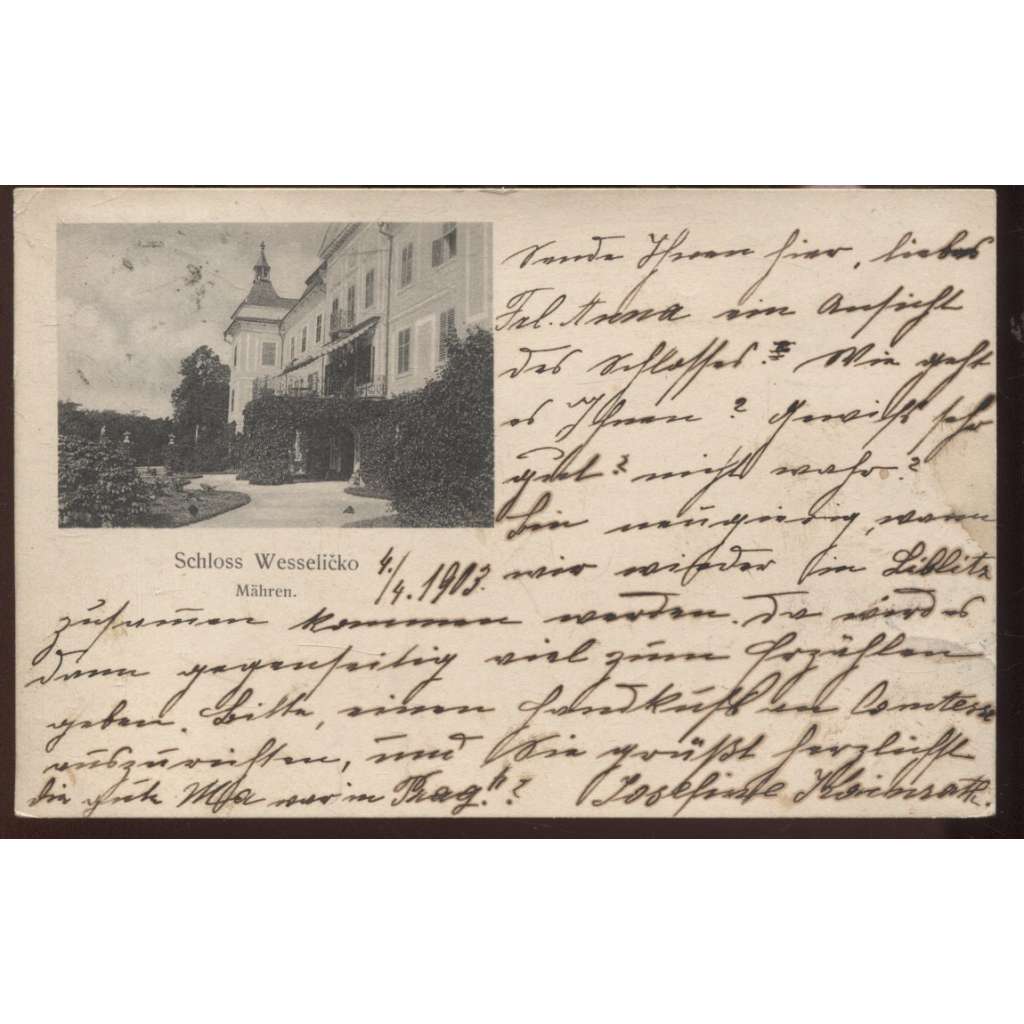 Sende Ihnen hier, liebes
Frl. Anna ein Ansicht
des Schlosses. Wie geht
es Ihnen? Gewiß sehr
gut? nicht wahr?
Bin neugierig, wann
wir wieder in Liblitz
Schloss Wesseličko
Mähren.
4./4. 1903.
zusammen kommen werden. Da wird es
dann gegenseitig viel zum Erzählen
geben. Bitte, einen Handkuß an Comtesse
auszurichten, und Sie grüßt herzlichst
die gute Ma war in Prag."? Josefine